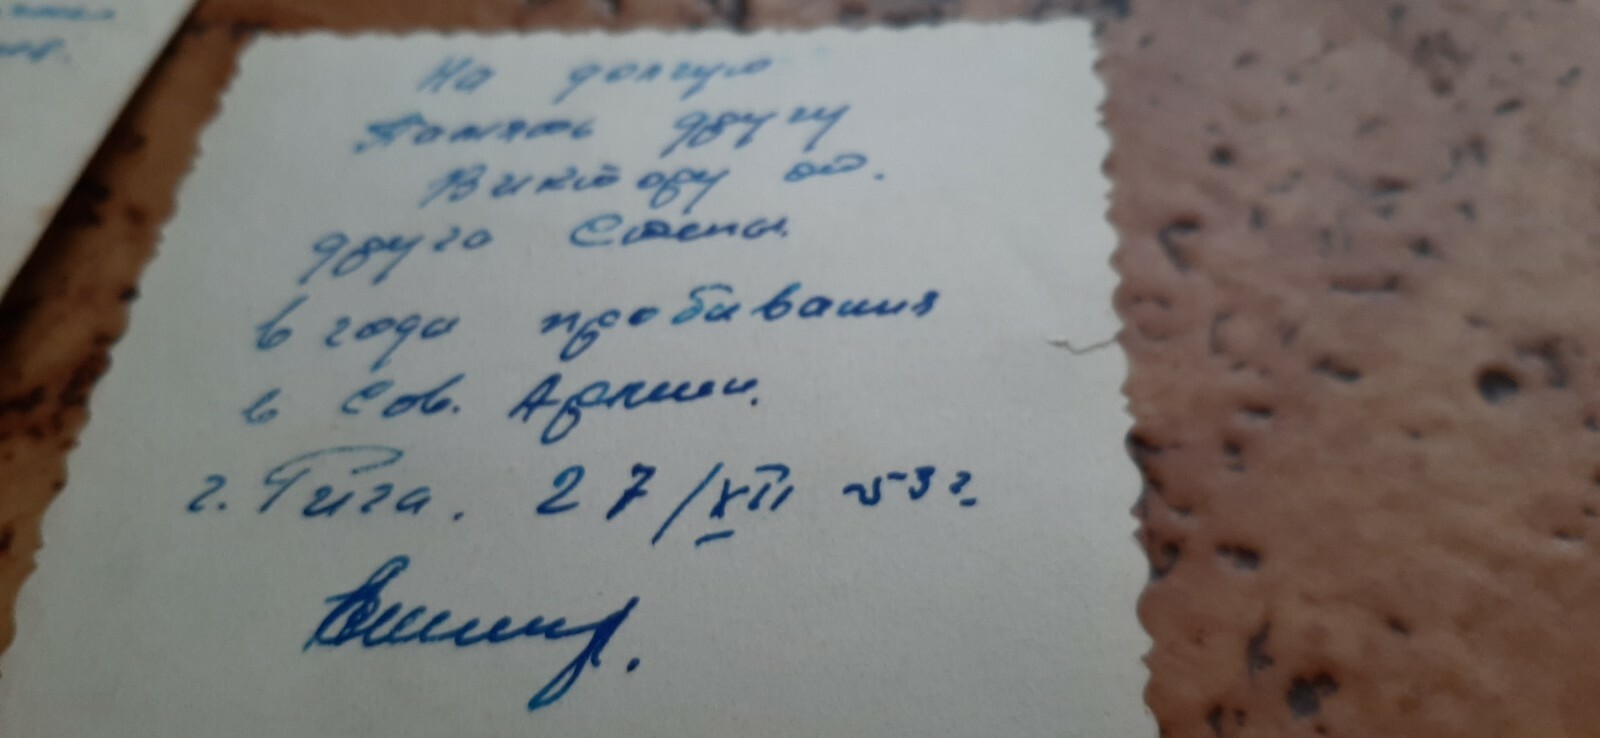 На долгую
Память другу
Виктору от.
друга Степы.
в годы пробивания
в Сов. Армии.
г. Рига. 27/XII 53 г.